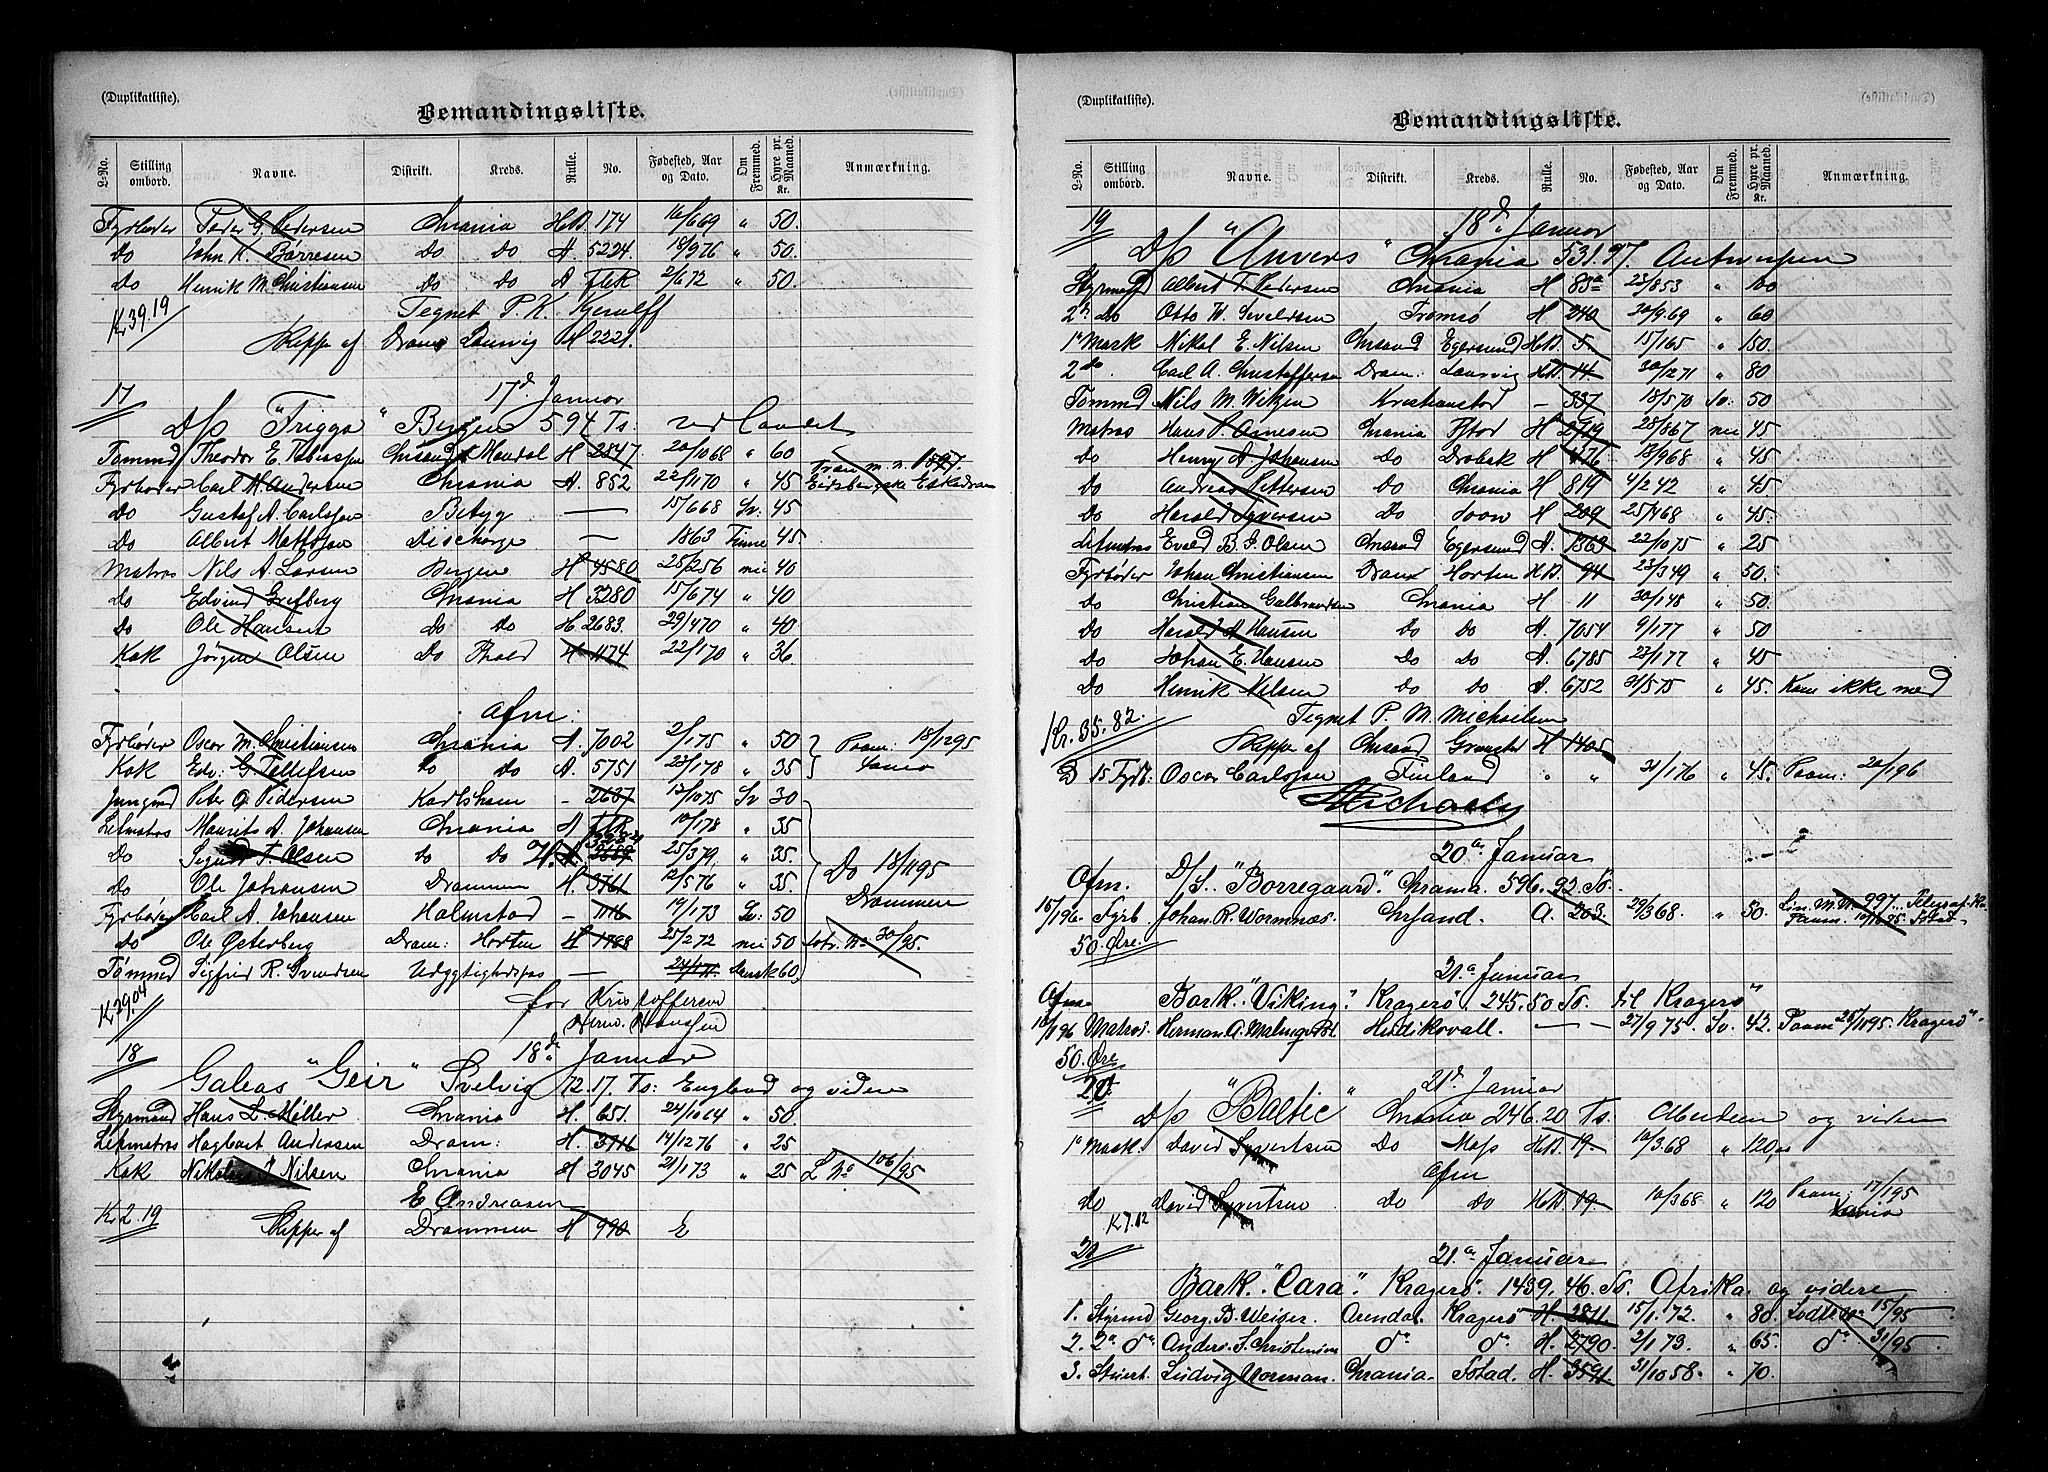 (Duplikatliste).
Bemandingsliste.
L-No. Stilling ombord. Navne. Distrikt. Kreds. Rulle. No. Fødested, Aar og Dato. Om Fremmed. Hyre pr. Maaned. Kr. Anmærkning.
Fyrbøder Peder G. Pedersen Chrania HB. 174 16/669 " 50.
Do John K. Børresen Do Do A. 5224 18/976 " 50.
Do Henrik M. Christiansen Do Do A 2/672 " 50.
Kr 39.19 Tegnet P. K. Kjerulff
Skipper af Dram Laurvig H 2221.
17 17d Januar
D/s "Trigga" Bergen 594 Ts: ved Landet
Tømmd Theodor E. Chrsand Mandal H 2847 20/1068 " 60
Fyrbøder Carl A. Andersen Chrania A. 852 22/1170 " 45
Do Gustaf A. Carlsson Betyg — 15/668 Sv. 45
Do Albert Mattsson Discharge — 1863 Finne 45.
Matros Nils A. Larsen Bergen H 4580 28/256 nei 40
Do Edvind Grefberg Chrania H 3280 15/674 " 40
Do Ole Hansen Do Do H. 2683. 29/470 " 40
Kok Jørgen Olsen Do Fhald H 1174 22/170 " 36
Afm:
Fyrbøder Oscar M. Christiansen Chrania A. 7002 2/175 " 50 Paam. 18/1295
Kok Edv: G. Tellefsen Do Do A. 5751 23/178 " 35
Jungmd Peter O. Pedersen Karlshamn - 2687 12/1075 Sv 30
Letmatros Maurits A. Johansen Chrania A 10/178 " 35
Do Sigurd T. Olsen Do Do H. 2689 25/379, " 35.
Do Ole Johansen Drammen H. 3761 12/576 " 35. Do 18/1195 Drammen
Fyrbøder Carl A. Johansen Halmstad - 1116 19/173 Sv: 50
Do Ole Østerberg Dram: Horten H 1768 25/272 nei 50 30/95.
Tømmd Sigfrid R. Svendsen Udygtighedspas — 24/171. Dansk 60
Kr 29.04 for Kristoffersen
Herm. Hanssen
18 18de Januar
Galeas "Geir" Svelvig 72.17. Ts: England og videre
Styrmand Hans L. Møller Chrania H. 651. 24/1064 " 50.
Letmatros Hagbart Andersen Dram: H. 3716 14/1276 " 25
Kok Nikolai Nilsen Chrania H 3045 21/173 " 25 L No 106/95
E Andreasen
Kr 2.19 Skipper af Drammen H 990 E
(Duplikatliste).
Bemandingsliste.
L-No. Stilling ombord. Navne. Distrikt. Kreds. Rulle. No. Fødested, Aar og Dato. Om Fremmed. Hyre pr. Maaned. Kr. Anmærkning.
19 18d Januar
D/s "Anvers" Chrania 531.97. Antwerpen
Styrmand Albert T. Pedersen Chrania H 83a 23/853 " 100
2n Do Otto W. Tromsø H 240 30/969 " 60
1e Mask Nikal E. Nilsen Chrsand Egersund HB. 5. 15/165 " 150.
2 do. Carl A. Christoffersen Dram: Laurvig HB. 14. 30/1271 " 80
Tømmd Nils M. Witzen Kristianstad — 337 18/570 Sv: 50
Matros Hans P. Arnesen Chrania Fstad H 2719 28/867 nei 45
Do Henry A. Johansen Do Drøbak H 476 18/968 " 45
Do Andreas Pettersen Do Chrania H 819 4/242 " 45
Do Harald Syversen Do Soon H 209 25/468 " 45.
Letmatros Evald B. S. Olsen Chrsand Egersund A. 1363 22/1075 " 25
Fyrbøder Johan Christiansen Dram Horten HB. 94 23/349 " 50.
Do Christian Gulbrandsen Chrania H 11 30/148 " 50.
Do Harald A. Hansen Do do A. 7054 9/177 " 50
Do Johan E. Hansen Do do A. 6785 23/177 " 45
Do Henrik Nilsen Do do A. 6752 31/575 " 45. Kom ikke med
Kr. 35.82. Tegnet P. M. Michailsen
Skipper af Chrsand Grimstad H 1405
15 Fyrb: Oscar Carlsson Finland " " 31/176 " 45. Paam: 20/196
Michaelsen
20de Januar
Afm. D/S. "Borregaard". Chrania. 596.92. To.
15/196. Fyrb Johan. R. Wormnæs. Chrsand. A. 203. 29/368. " 50.
50. Øre.
21.de Januar
Afm. Bark. "Viking". Kragerø. 245.50 To. til Kragerø"
16/196 Matros. Herman. A. Malmqvist Hudiksvall. — — 27/975. Sv. 42. Paam 28/1195. Kragerø".
50. Øre
20. 21d Januar
D/s "Baltic" Chrania 246.20 Ts. Aberdeen og videre
1e Mask. David Syvertsen Do Moss HB. 19. 10/3.68 " 120,00
Afm
Do David Syvertsen Do Do HB. 19. 10/368 " 120 Paam: 17/195
K 7.12
20 21.de Januar
Bark. "Cara". Kragerø. 1439.46. To. Afrika og videre
1. Styrmd Georg. B. Weiser. Arendal Kragerø H. 2811. 15/1.72. " 80. 15/95
2. 2n do Anders. S. Christensen do do H. 2790. 2/1.73. " 65. do 31/95
3. Stuert. Ludvig Norman. Chrania. Fstad. H. 3591. 31/1058. " 70.